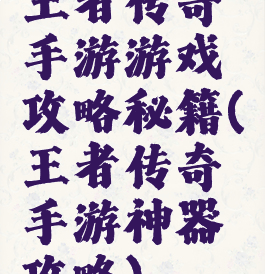 王者传奇
手游游戏
攻略秘籍(
王者传奇
手游神器
攻略)